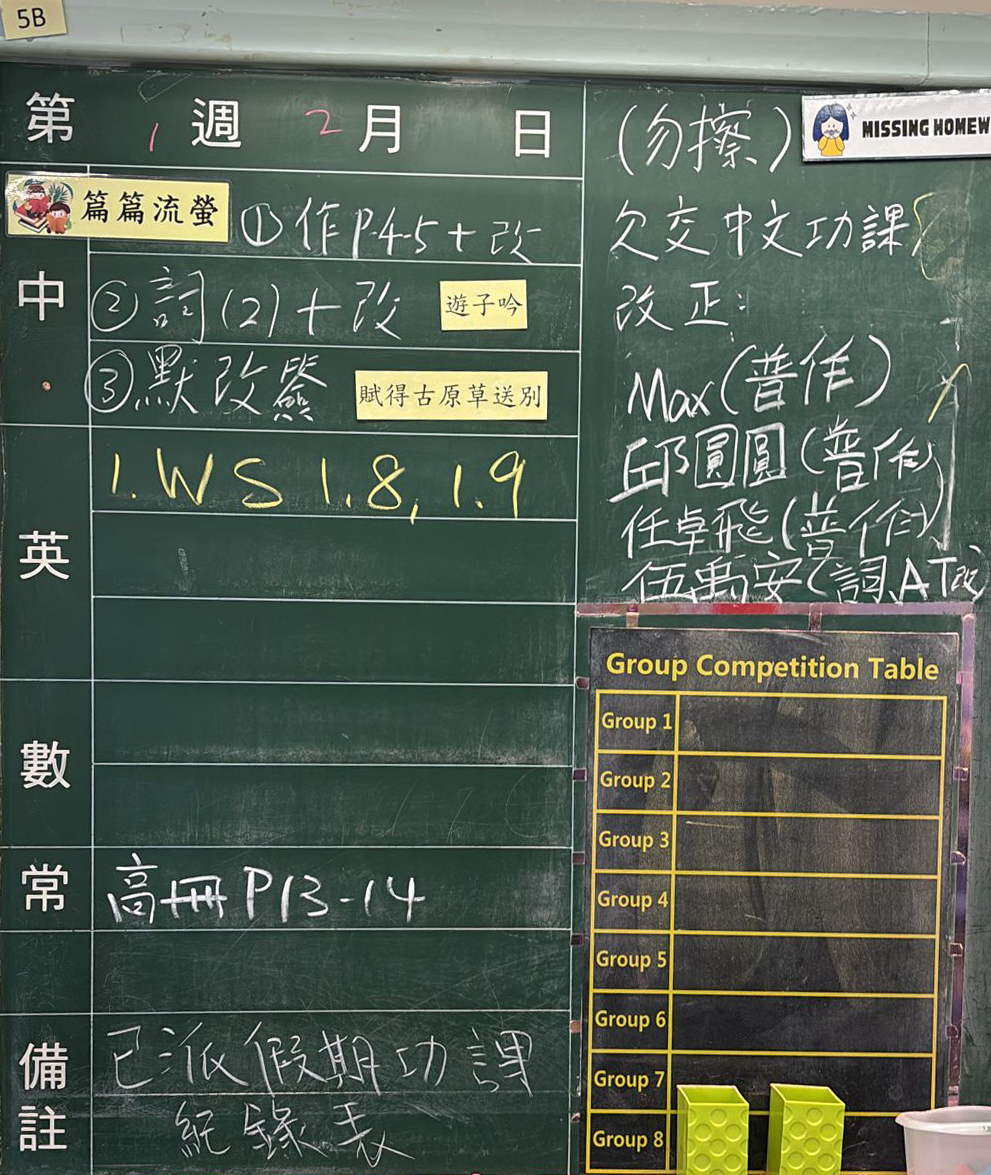 5B
第 1 週 2 月 日
篇篇流螢 ①作P.4-5+改
中
②詞(2)+改 遊子吟
③默改簽 賦得古原草送別
英
1.WS 1.8, 1.9
數
常
高冊P13-14
備註
已派假期功課
紀錄表
(勿擦) MISSING HOMEW
欠交中文功課
改正:
Max(普作)
邱圓圓(普作)
任卓飛(普作)
伍禹安(詞、AT改)
Group Competition Table
Group 1
Group 2
Group 3
Group 4
Group 5
Group 6
Group 7
Group 8